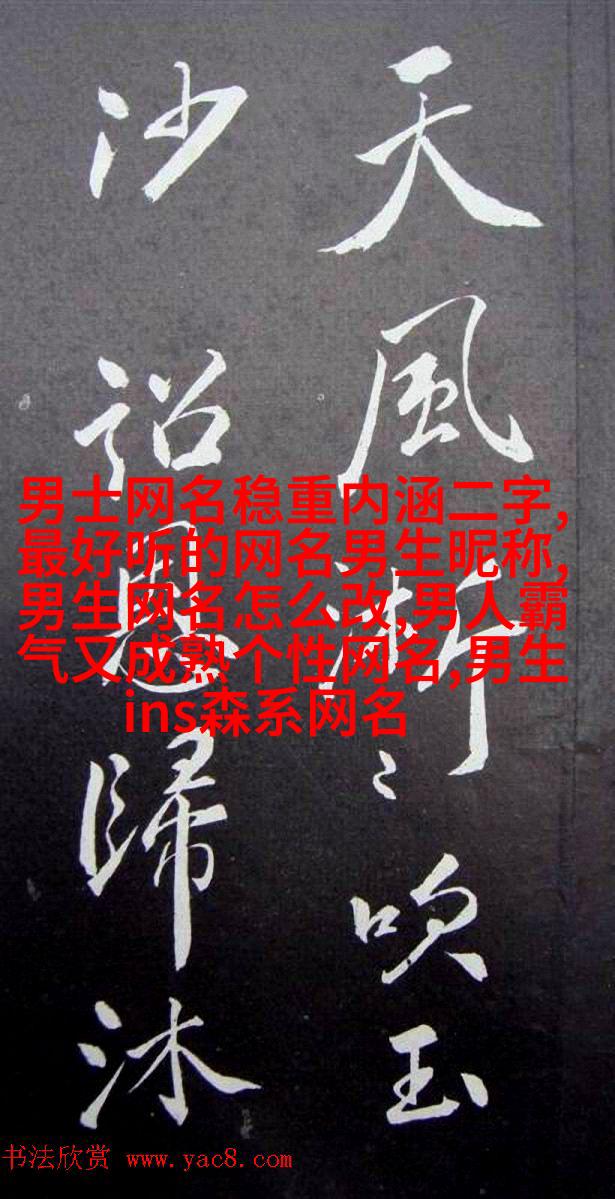 天風淅〻吹玉
沙詔恩歸沐
男士网名稳重内涵二字,
最好听的网名男生昵称,
男生网名怎么改,男人霸
气又成熟个性网名,男生
ins森系网名
书法欣赏 www.yac8.com